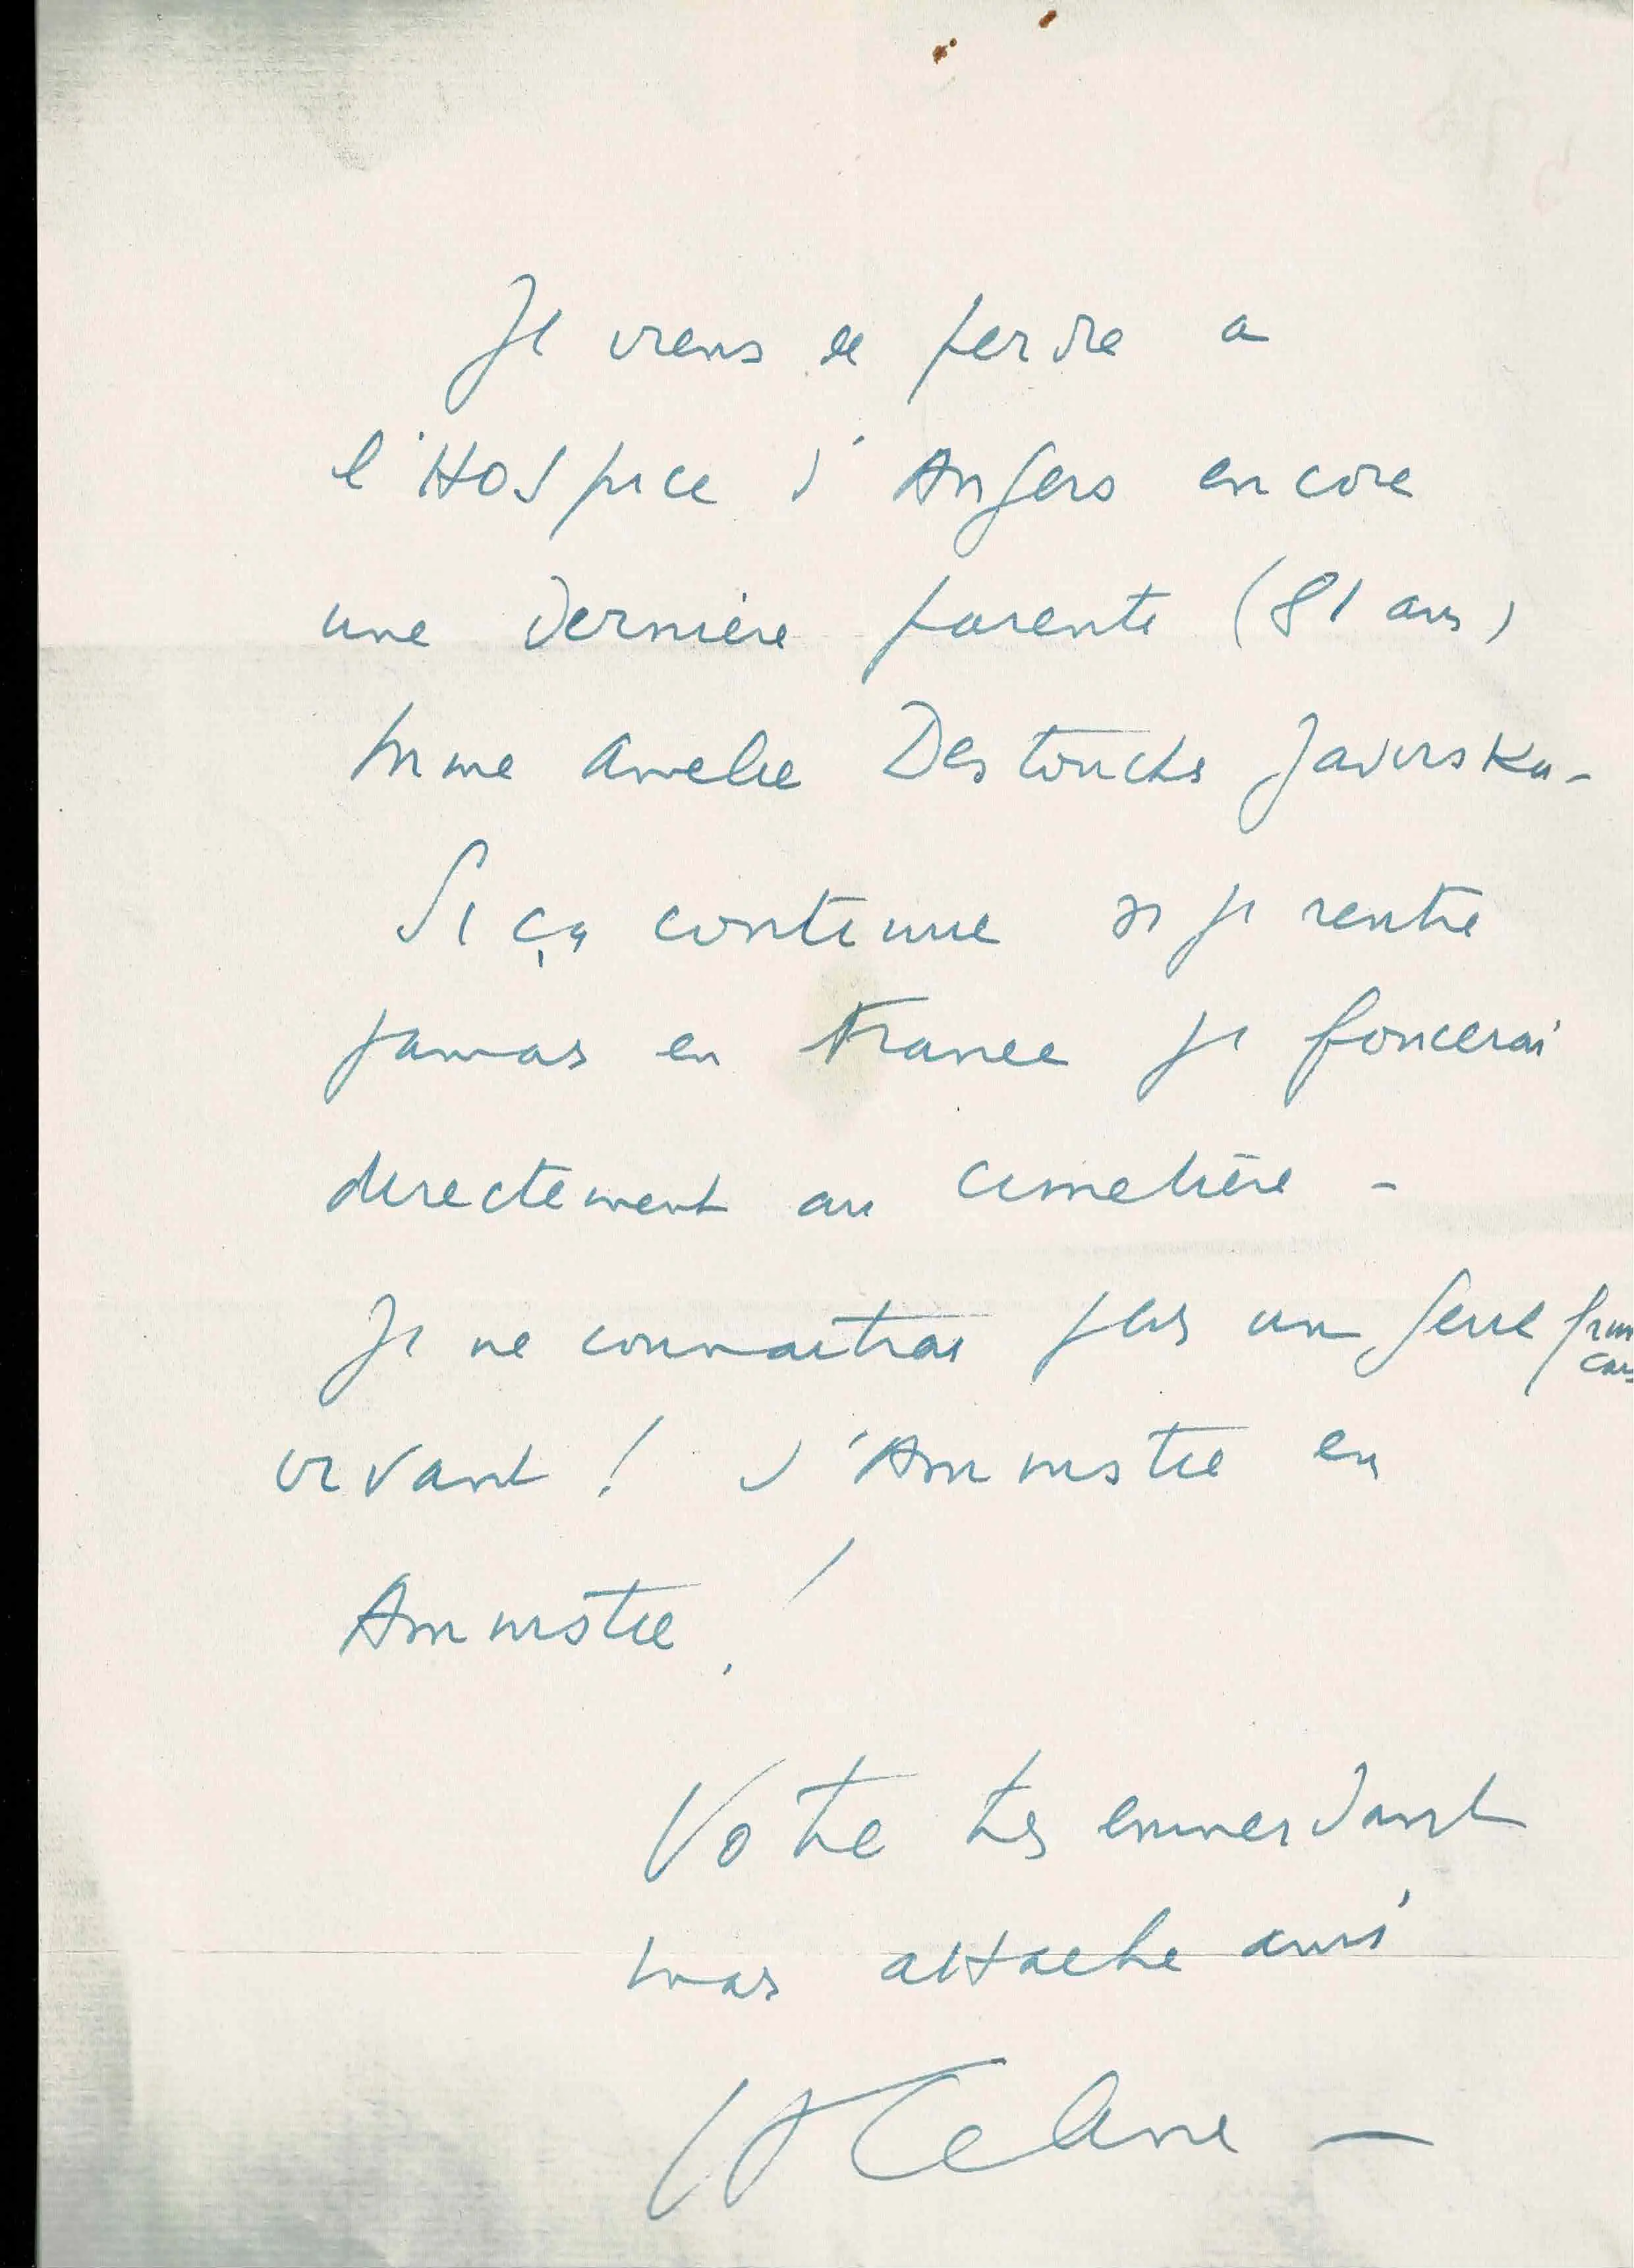 Je viens de perdre a
l'Hospice d'Angers encore
une dernière parente (81 ans)
Mme Amelie Destouches Zawirska -
Si ça continue si je rentre
jamais en France je foncerai
directement au cimetière -
Je ne connaitrai plus un seul francais
vivant ! d'Amnistie en
Amnistie !
Votre tres emmerdant
mais attaché ami
LF Celine —